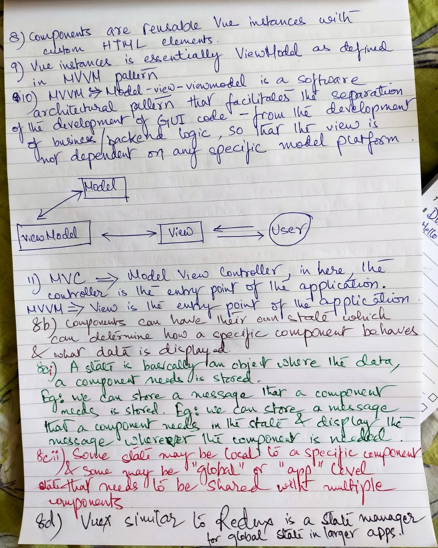 8) Components are reusable Vue instances with
custom HTML elements.
9) Vue instances is essentially ViewModel as defined
in MVVM pattern
10) MVVM ⇒ Model-view-viewmodel is a software
architectural pattern that facilitates the separation
of the development of GUI code - from the development
of business/backend logic, so that the view is
not dependent on any specific model platform.
Model
ViewModel
View
User
11) MVC ⇒ Model View Controller, in here, the
controller is the entry point of the application.
MVVM ⇒ View is the entry point of the application.
8b) Components can have their own state which
can determine how a specific component behaves
& what data is displayed.
8ci) A state is basically an object where the data,
a component needs is stored.
Eg: we can store a message that a component
needs is stored. Eg: we can store a message
that a component needs in the state & display the
message wherever the component is needed.
8cii) Some state may be local to a specific component
& some may be "global" or "app" level
state that needs to be shared with multiple
components
8d) Vuex similar to Redux is a state manager
for global state in larger apps.